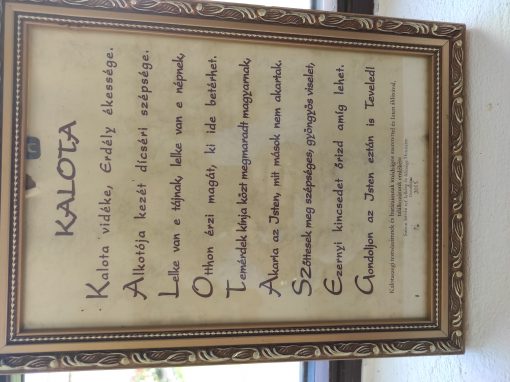 KALOTA
Kalota vidéke, Erdély ékessége.
Alkotója kezét dicséri szépsége.
Lelke van e tájnak, lelke van e népnek,
Otthon érzi magát, ki ide betérhet.
Temérdek kínja közt megmaradt magyarnak,
Akarta az Isten, mit mások nem akartak.
SZőttesek meg szépséges, gyöngyös viselet,
Ezernyi kincsedet őrizd amíg lehet.
Gondoljon az Isten eztán is Teveled!
2015